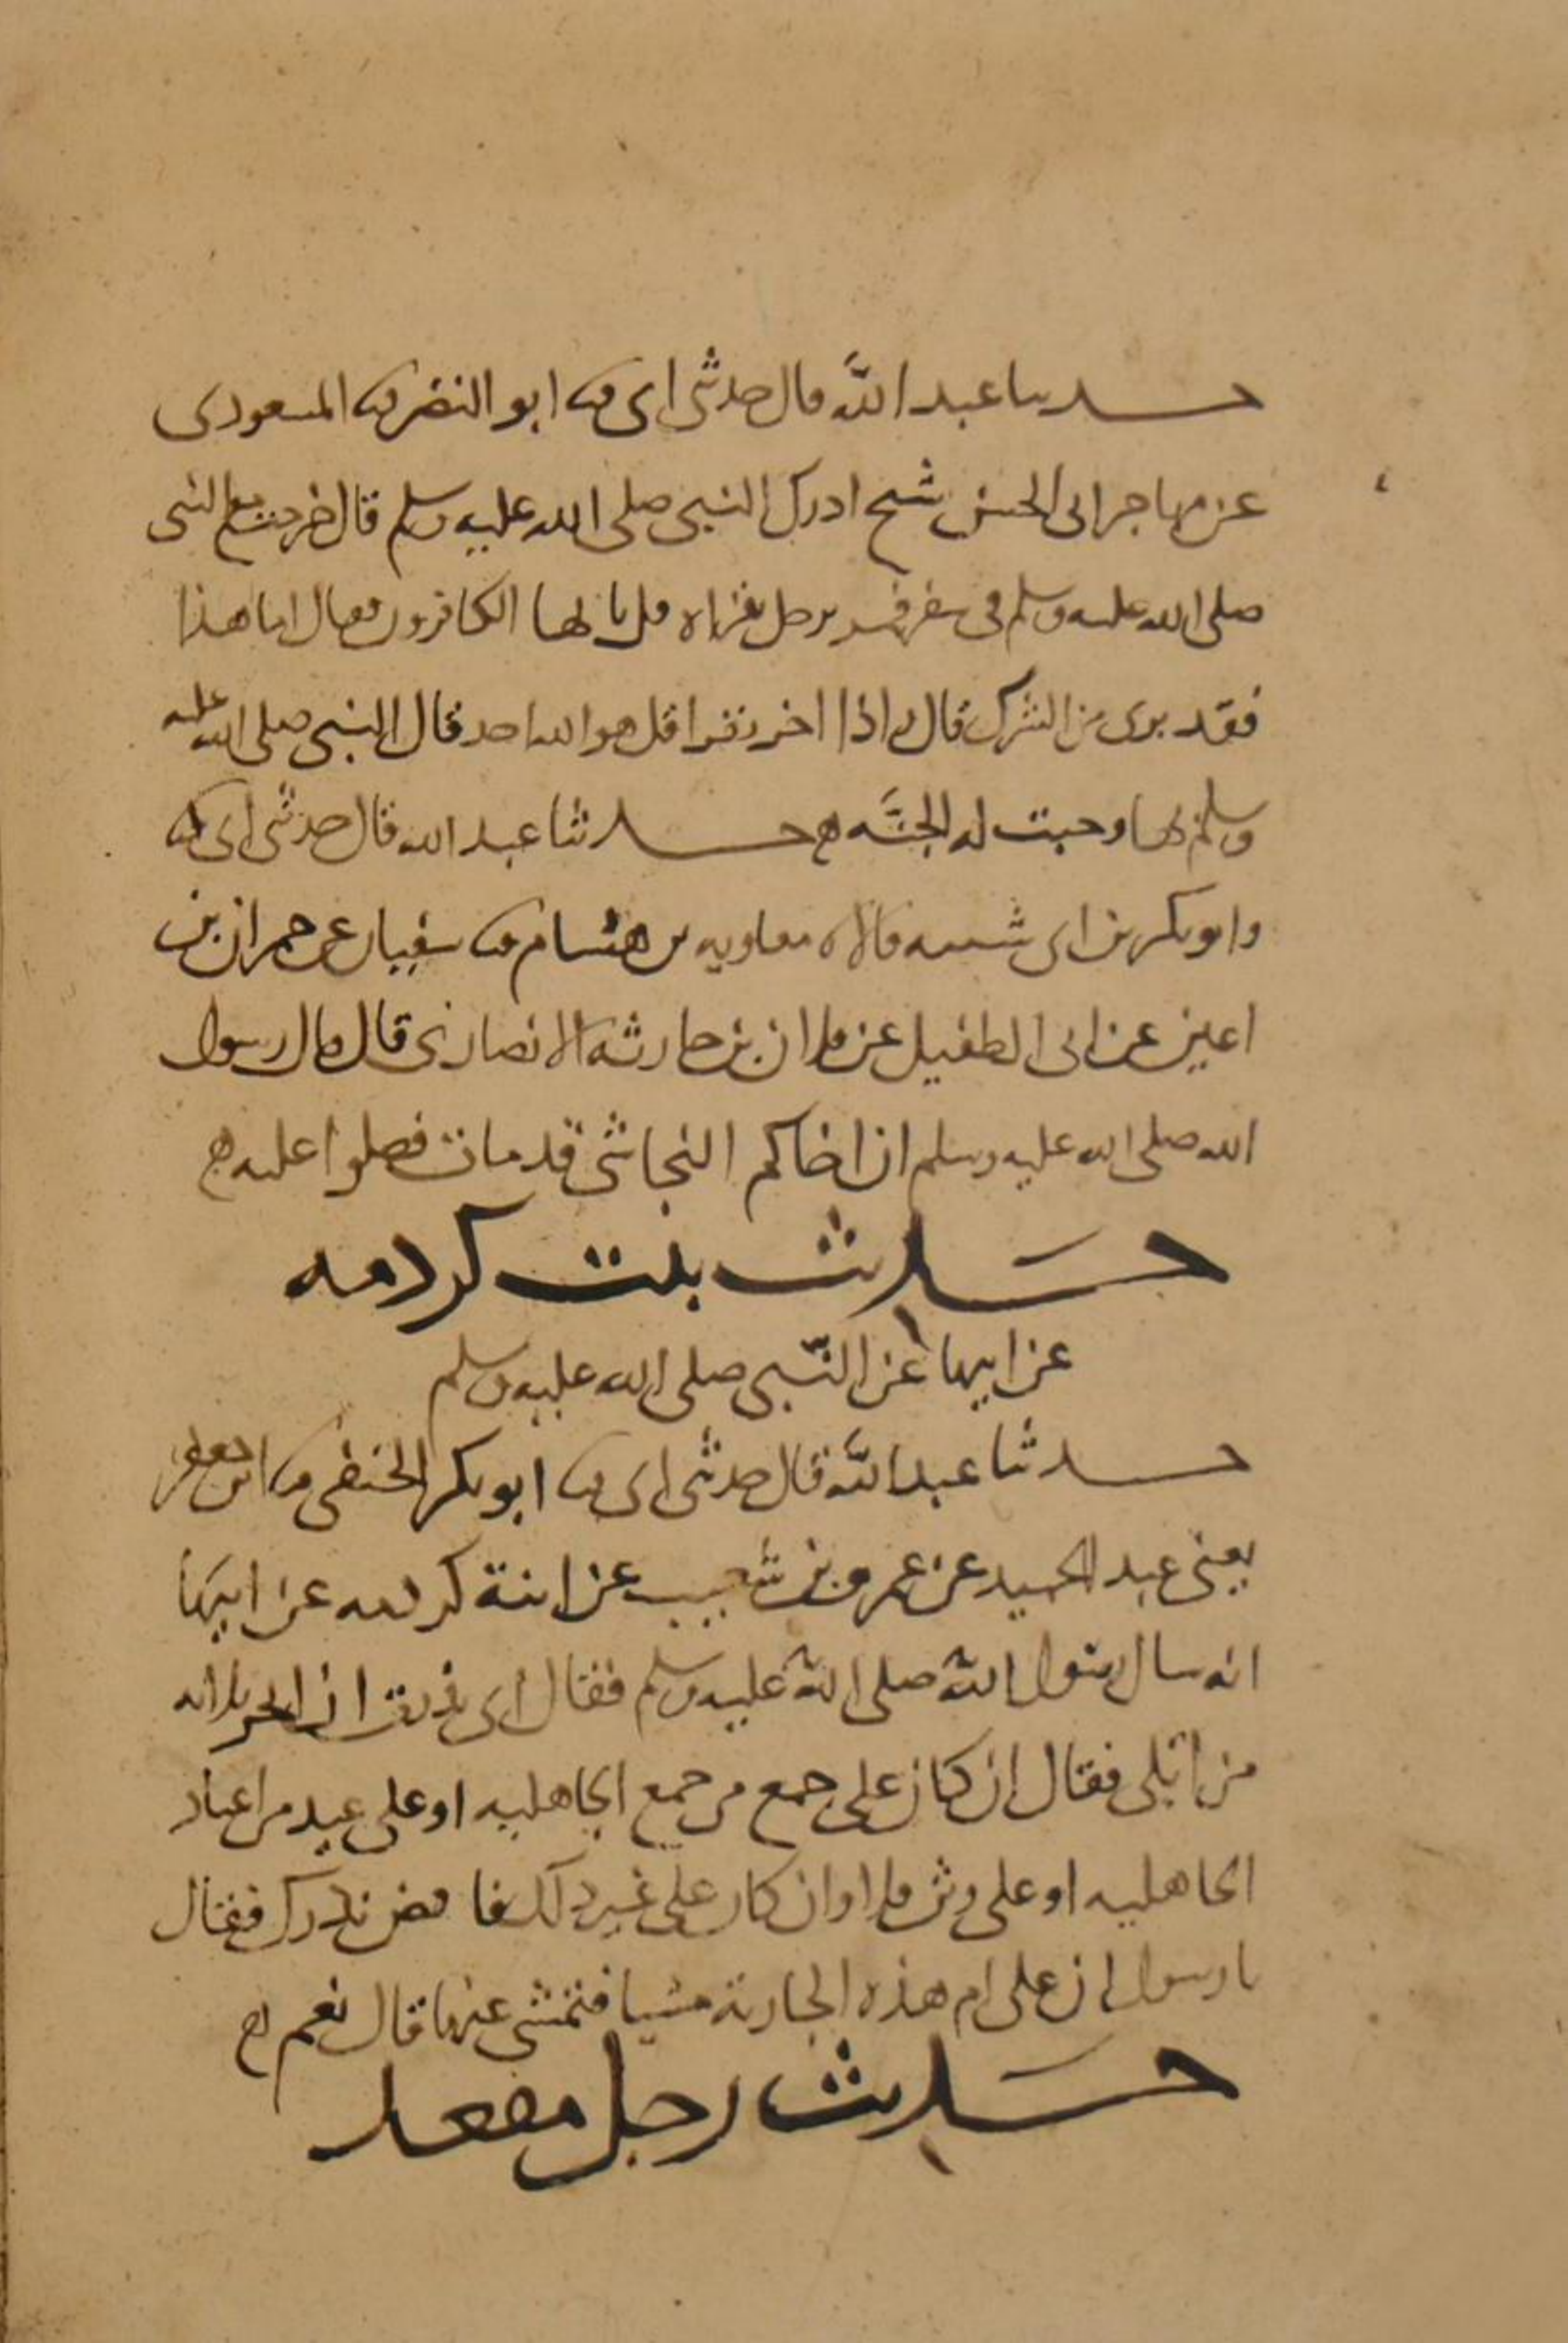 حدثنا عبد الله قال حدثنى ابى نا ابو النضر نا المسعودى
عن مهاجر ابى الحسن عن شيخ ادرك النبى صلى الله عليه وسلم قال خرجت مع النبى
صلى الله عليه وسلم فى سفر فمر برجل يقرا قل يا ايها الكافرون فقال اما هذا
فقد برى من الشرك قال واذا اخر يقرا قل هو الله احد فقال النبى صلى الله عليه
وسلم بها وجبت له الجنه حدثنا عبد الله قال حدثنى ابى
وابو بكر بن ابى شيبه قالا نا معاويه بن هشام نا سفيان عن حمران بن
اعين عن ابى الطفيل عن فلان بن حارثه الانصارى قال قال رسول
الله صلى الله عليه وسلم ان اخاكم النجاشى قد مات فصلوا عليه
حديث بنت كردمه
عن ابيها عن النبى صلى الله عليه وسلم
حدثنا عبد الله قال حدثنى ابى نا ابو بكر الحنفى نا ابن جعفر
يعنى عبد الحميد عن عمرو بن شعيب عن ابنة كردمه عن ابيها
انه سال رسول الله صلى الله عليه وسلم فقال انى نذرت ان انحر ثلاثه
من ابلى فقال ان كان على جمع من جمع الجاهليه او على عيد من اعياد
الجاهليه او على وثن فلا وان كان على غير ذلك فاقض نذرك فقال
يا رسول ان على ام هذه الجارية مشيا فتمشى عنها قال نعم
حديث رجل مقعد